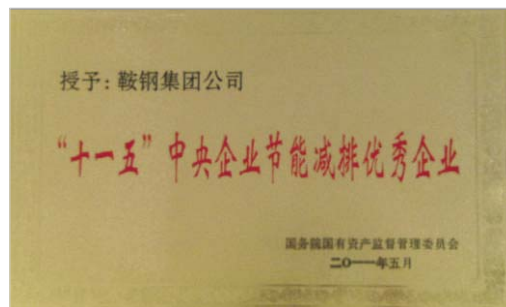 授予：鞍钢集团公司
“十一五”中央企业节能减排优秀企业
国务院国有资产监督管理委员会
二〇一一年五月